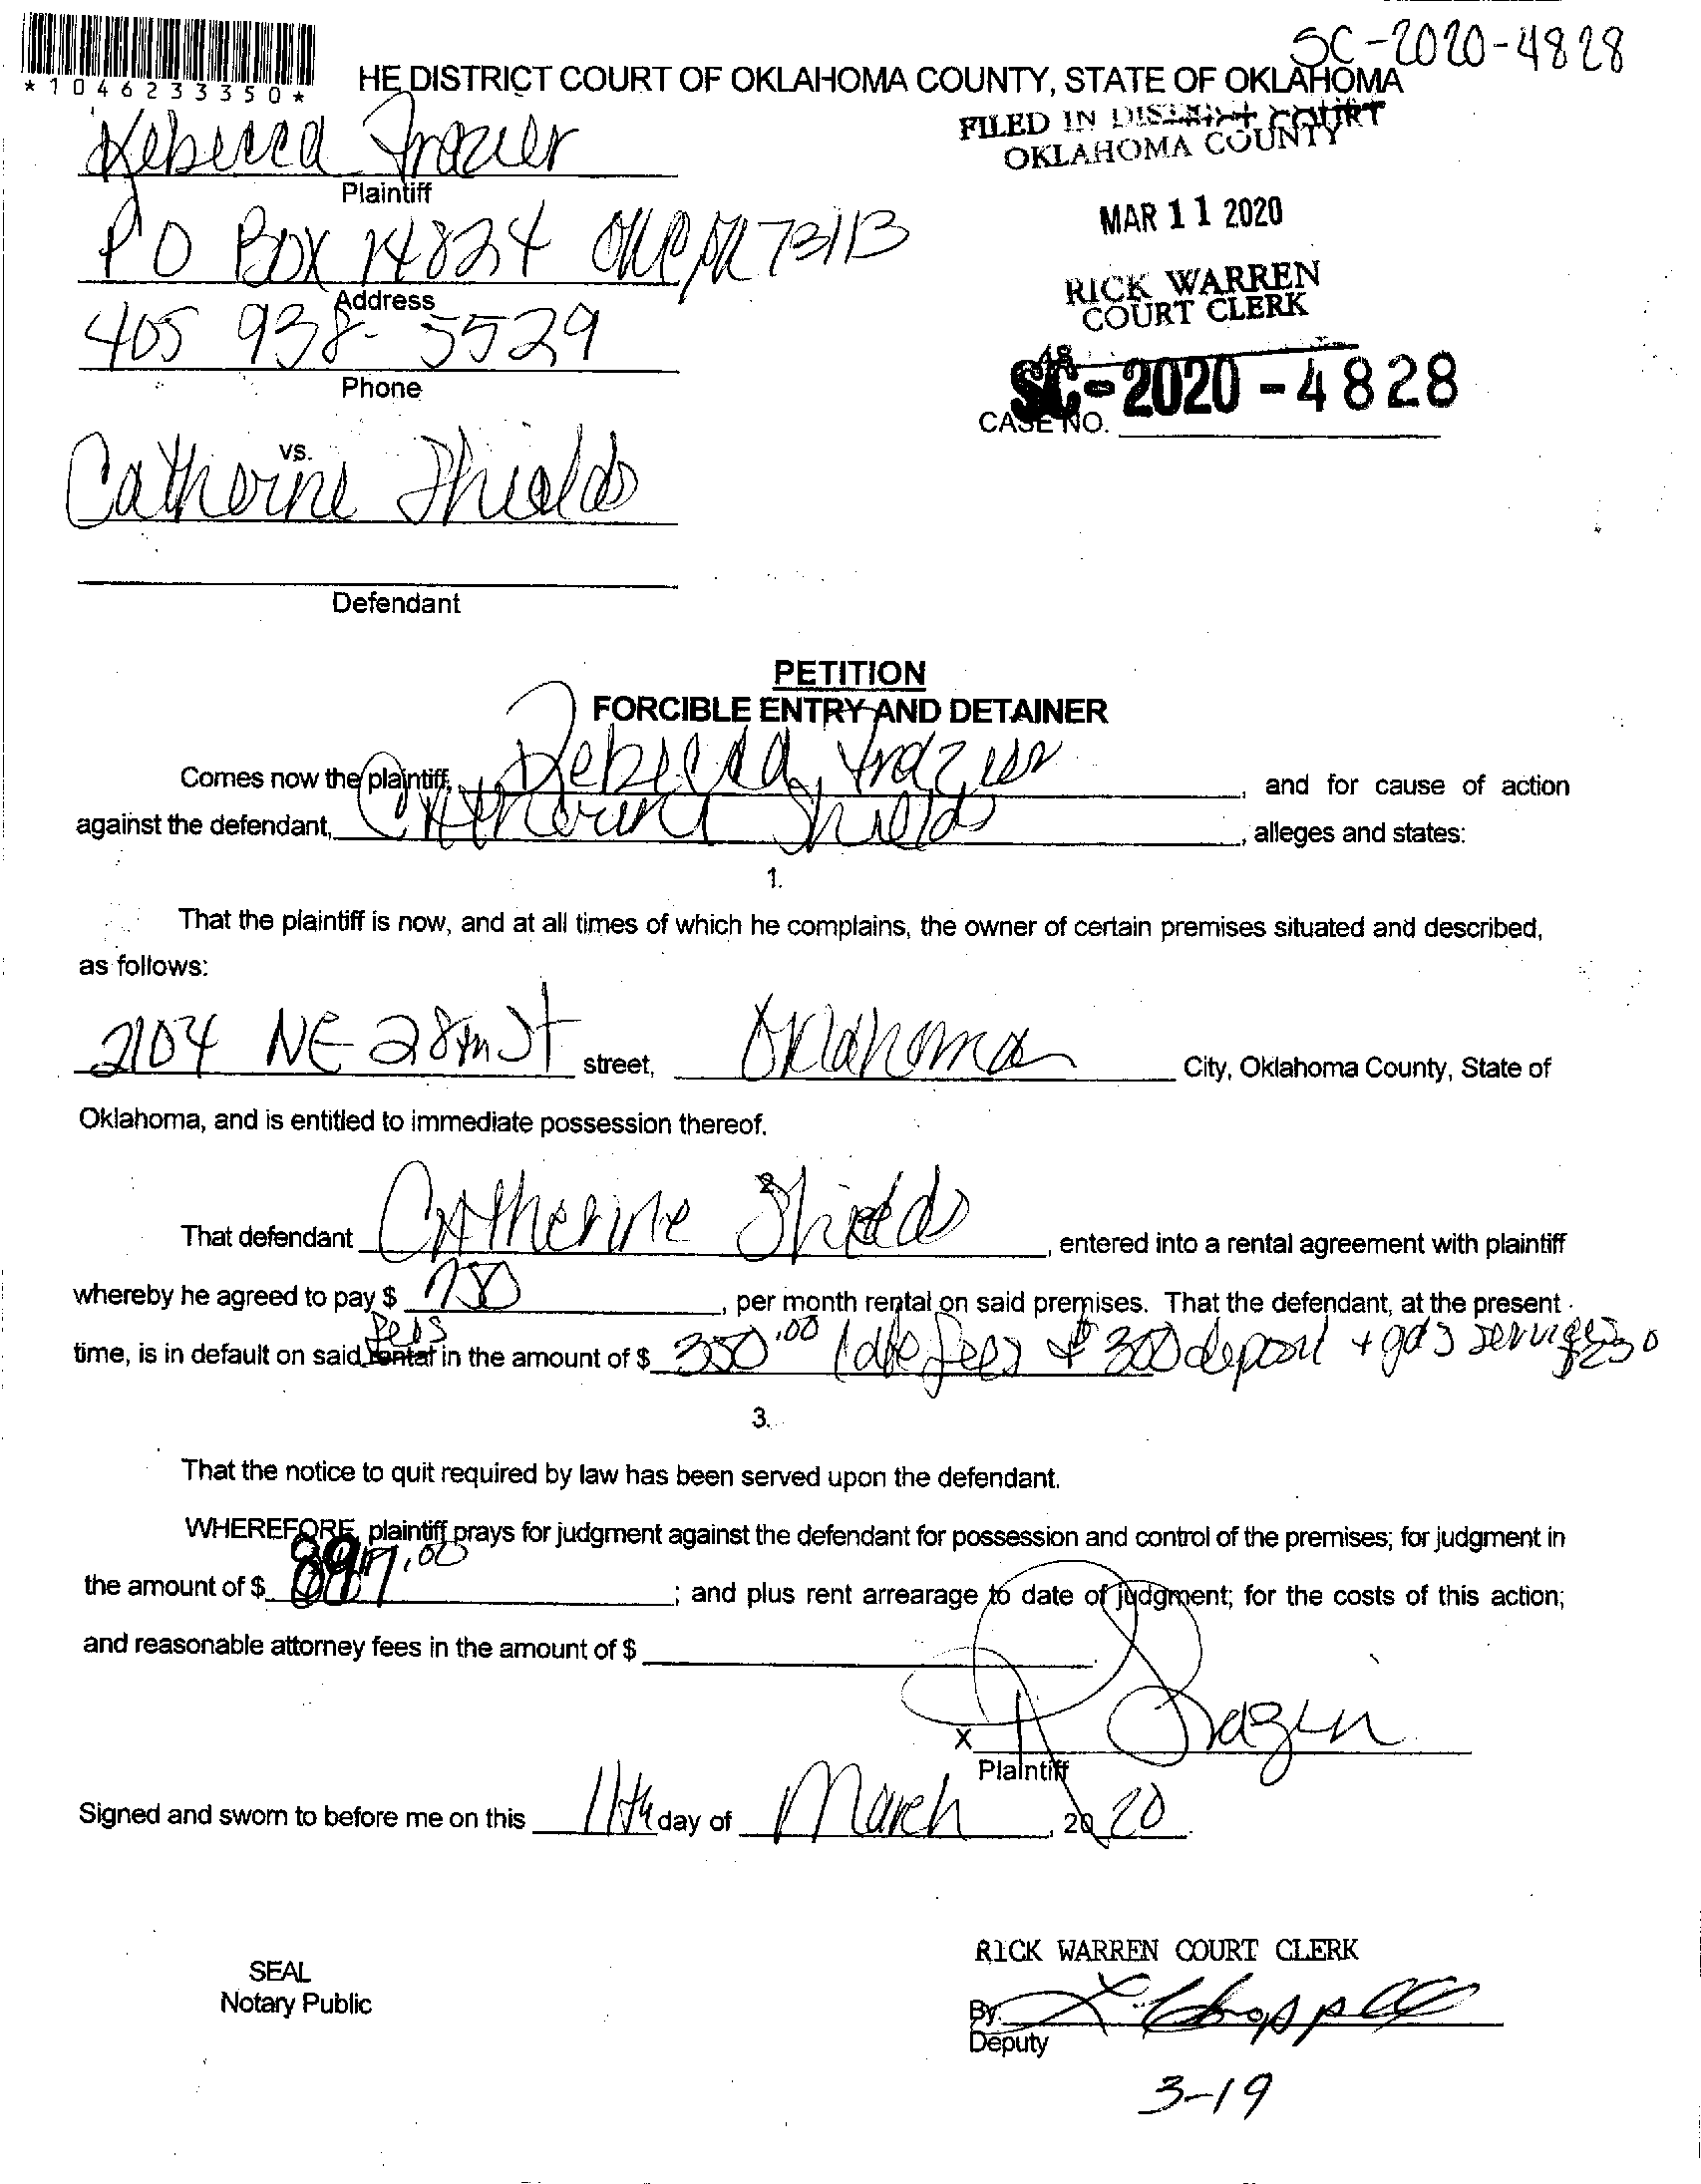 SC-2020-4828
*1046233350*
HE DISTRICT COURT OF OKLAHOMA COUNTY, STATE OF OKLAHOMA
FILED IN DISTRICT COURT
OKLAHOMA COUNTY
Rebecca Frazier
Plaintiff
MAR 11 2020
PO BOX 14824 OKC OK 73113
Address
RICK WARREN
COURT CLERK
405 938-5529
Phone
48
SC-2020-4828
CASE NO.
vs.
Catherine Shields
Defendant
PETITION
FORCIBLE ENTRY AND DETAINER
Comes now the plaintiff, Rebecca Frazier, and for cause of action
against the defendant, Catherine Shields, alleges and states:
1.
That the plaintiff is now, and at all times of which he complains, the owner of certain premises situated and described,
as follows:
2104 NE 28th St street, Oklahoma City, Oklahoma County, State of
Oklahoma, and is entitled to immediate possession thereof.
2
That defendant Catherine Shields, entered into a rental agreement with plaintiff
whereby he agreed to pay $ 750, per month rental on said premises. That the defendant, at the present
fees
time, is in default on said rental in the amount of $ 350.00 late fees $300 deposit + gas services $250
3.
That the notice to quit required by law has been served upon the defendant.
WHEREFORE, plaintiff prays for judgment against the defendant for possession and control of the premises; for judgment in
the amount of $ .00; and plus rent arrearage to date of judgment; for the costs of this action;
and reasonable attorney fees in the amount of $
x R Frazier
Plaintiff
Signed and sworn to before me on this 11th day of March, 2020.
RICK WARREN COURT CLERK
SEAL
Notary Public
By: L Chappell
Deputy
3-19